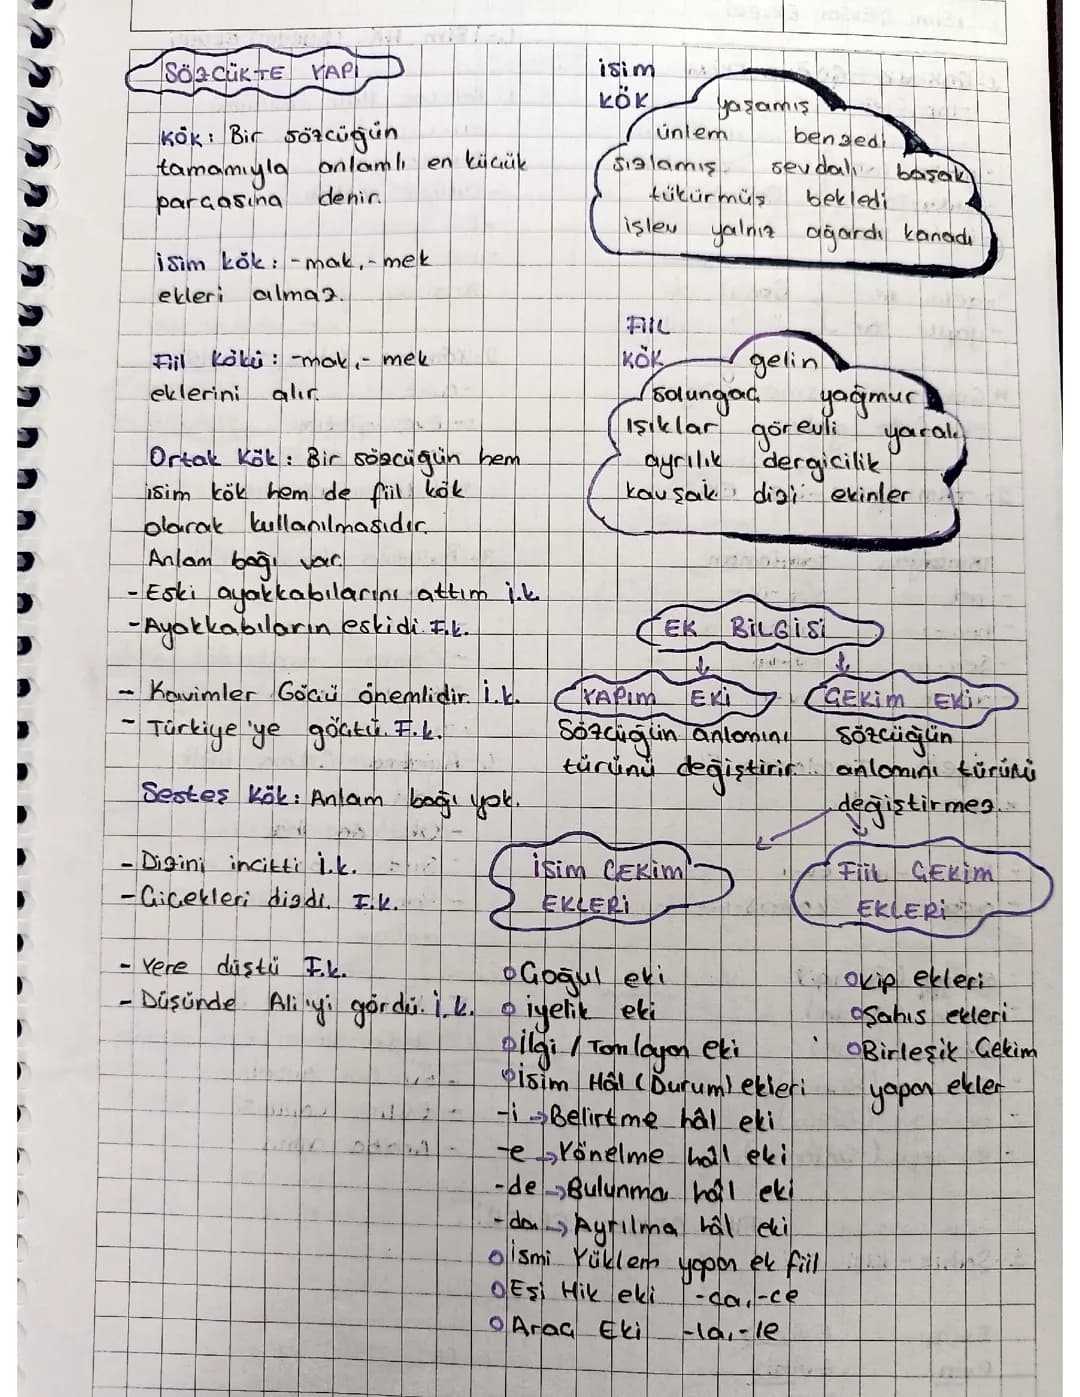 SÖZCÜKTE YAPI
KÖK: Bir sözcüğün
tamamıyla anlamlı en küçük
parçasına denir.
isim kök: -mak, -mek
ekleri almaz.
Fiil Kökü: -mak, -mek
eklerini alır.
Ortak Kök: Bir sözcüğün hem
isim kök hem de fiil kök
olarak kullanılmasıdır.
Anlam bağı var.
- Eski ayakkabılarını attım i.k
- Ayakkabıların eskidi. F.k.
- Kavimler Göçü önemlidir. İ.k.
- Türkiye'ye göçtü. F.k.
Sesteş Kök: Anlam bağı yok.
- Dizini incitti İ.k.
- Çiçekleri dizdi. F.k.
- Yere düştü F.k.
- Düşünde Ali'yi gördü. İ.k.
isim
KÖK
yaşamış
ünlem benzedi
sızlamış sevdalı başak
tükürmüş bekledi
işlev yalnız ağardı kanadı
FiiL
KÖK
gelin
solungaç yağmur
Işıklar görevli yaralı
ayrılık dergicilik
kavşak dizi ekinler
EK BİLGİSİ
YAPIM EKİ
Sözcüğün anlamını
türünü değiştirir.
ÇEKİM EKİ
sözcüğün
anlamını türünü
değiştirmez.
İSİM ÇEKİM
EKLERİ
Çoğul eki
iyelik eki
İlgi / Tamlayan eki
İsim Hâl (Durum) ekleri
-i → Belirtme hâl eki
-e → Yönelme hâl eki
-de → Bulunma hâl eki
-da → Ayrılma hâl eki
İsmi Yüklem yapan ek fiil
Eşi Hik eki -ca, -ce
Araç Eki -la, -le
FİİL ÇEKİM
EKLERİ
Kip ekleri
Şahıs ekleri
Birleşik Çekim
yapan ekler